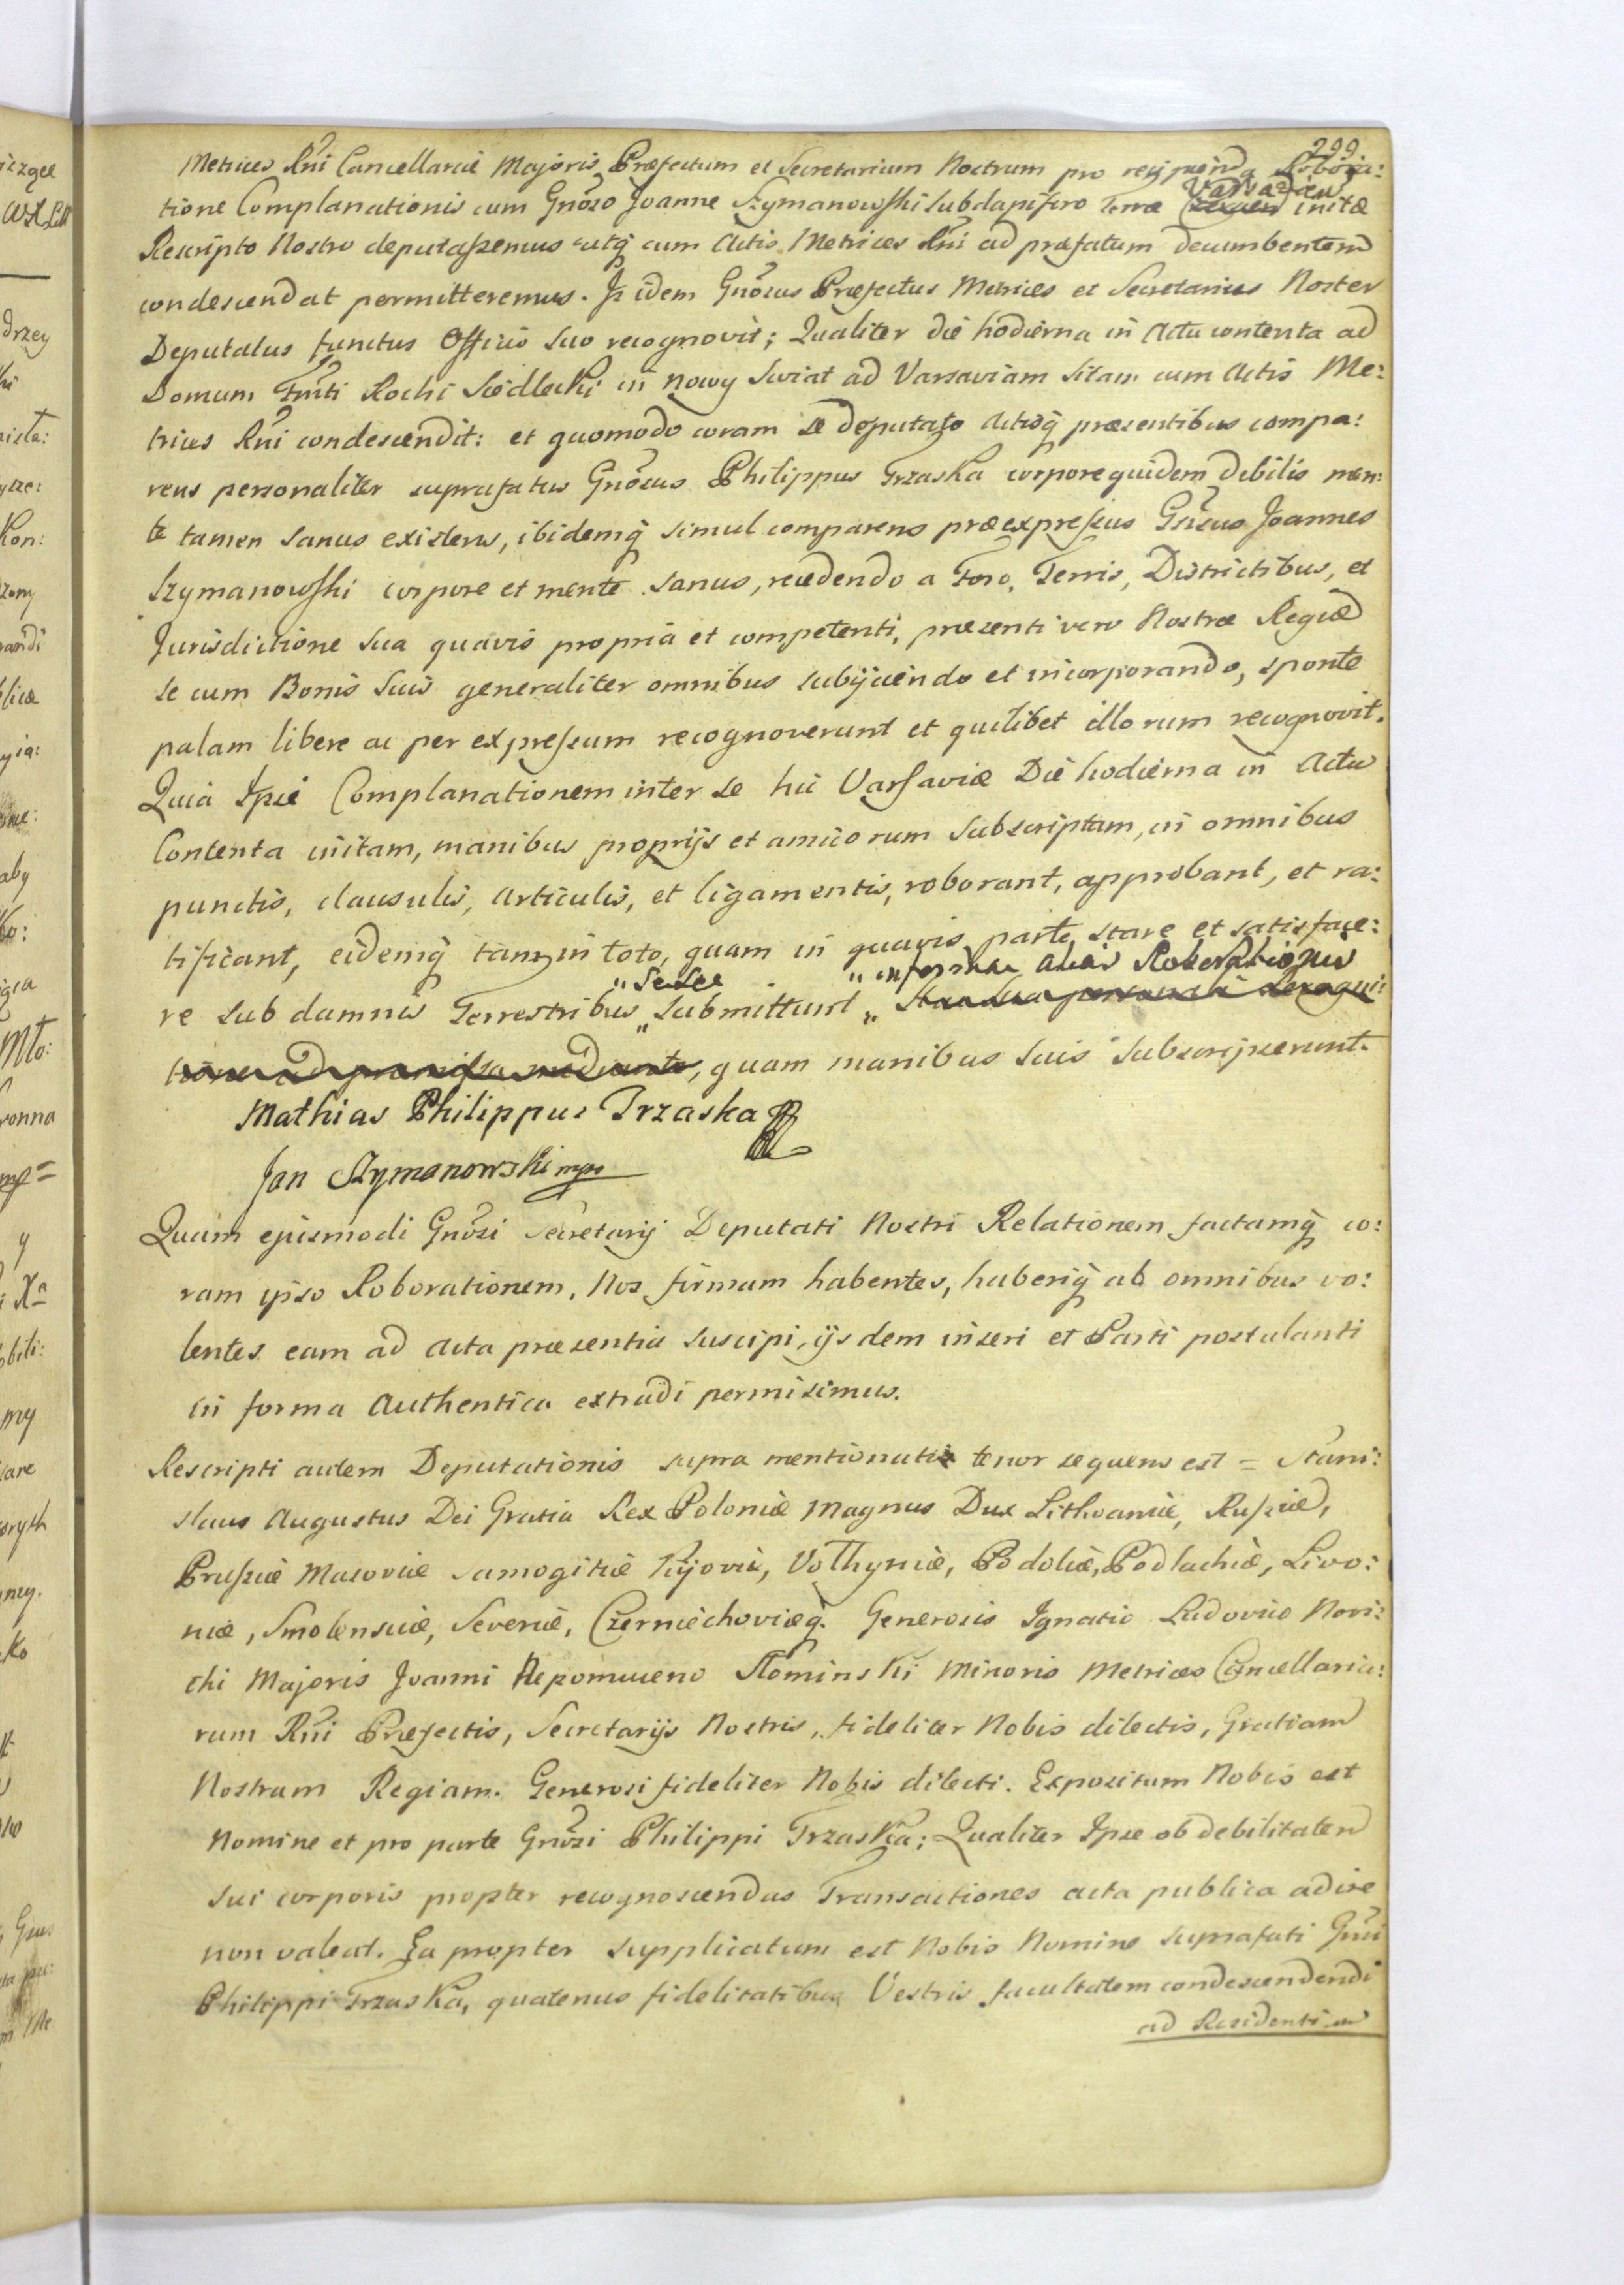 299
Metrices Rñi Cancellariæ Majoris Præfectum et Secretarium Nostrum pro recipienda Robora:
Varsavien
tione Complanationis cum Gnõso Joanne Szymanowski Subdapifero Terræ initæ
Rescripto Nostro deputassemus utq̃ cum Actis Metrices Rñi ad præfatum decumbentem
condescendat permitteremus. Is idem Gnõsus Præfectus Metrices et Secretarius Noster
Deputatus functus Officio suo recognovit; Qualiter die hodierna in Actu contenta ad
Domum Fmti Rochi Siedlecki in Nowy Swiat ad Varsaviam Sitam cum Actis Me:
trices Rñi condescendit: et quomodo coram se deputato Actisq̃ præsentibus compa:
rens personaliter suprafatus Gnõsus Philippus Trzaska corpore quidem debilis men:
te tamen sanus existens, ibidemq̃ simul comparens præexpressus Gnõsus Joannes
Szymanowski corpore et mente sanus, recedendo a Foro, Terris, Districtibus, et
Jurisdictione sua quavis propria et competenti, præsenti vero Nostræ Regiæ
se cum Bonis Suis generaliter omnibus subijciendo et incorporando, sponte
palam libere ac per expressum recognoverunt et quilibet illorum recognovit.
Quia Ipsi Complanationem inter se hic Varsaviæ Die hodierna in Actu
Contenta initam, manibus proprijs et amicorum Subscriptam, in omnibus
punctis, clausulis, articulis, et ligamentis, roborant, approbant, et ra:
tificant, eidemq̃ tam in toto, quam in quavis parte, stare et satisface:
„ Sese „ in forma alias Roborationis
re sub damnis Terrestribus „ submittunt „
, quam manibus suis Subscripserunt.
Mathias Philippus Trzaska
Jan Szymanowski mpr
Quam ejusmodi Gnõsi Secretarij Deputati Nostri Relationem factamq̃ co:
ram ipso Roborationem, Nos firmam habentes, haberiq̃ ab omnibus vo:
lentes eam ad Acta præsentia suscipi, ijsdem inseri et Parti postulanti
in forma Authentica extradi permisimus.
Rescripti autem Deputationis supra mentionati tenor sequens est = Stani:
slaus Augustus Dei Gratia Rex Poloniæ Magnus Dux Lithvaniæ, Russiæ,
Prussiæ Masoviæ Samogitiæ Kijoviæ, Volhyniæ, Podoliæ, Podlachiæ, Livo:
niæ, Smolensciæ, Severiæ, Czerniechoviæq̃. Generosis Ignatio Ludovico Novi:
cki Majoris Joanni Nepomuceno Słominski Minoris Metrices Cancellaria:
rum Rñi Præfectis, Secretarijs Nostris, fideliter Nobis dilectis, Gratiam
Nostram Regiam. Generosi fideliter Nobis dilecti. Expositum Nobis est
Nomine et pro parte Gnõsi Philippi Trzaska; Qualiter Ipse ob debilitatem
sui corporis propter recognoscendas Transactiones acta publica adire
non valeat. Ea propter supplicatum est Nobis Nomine suprafati Gñsi
Philippi Trzaska, quatenus fidelitatibus Vestris facultatem condescendendi
ad Residentiam